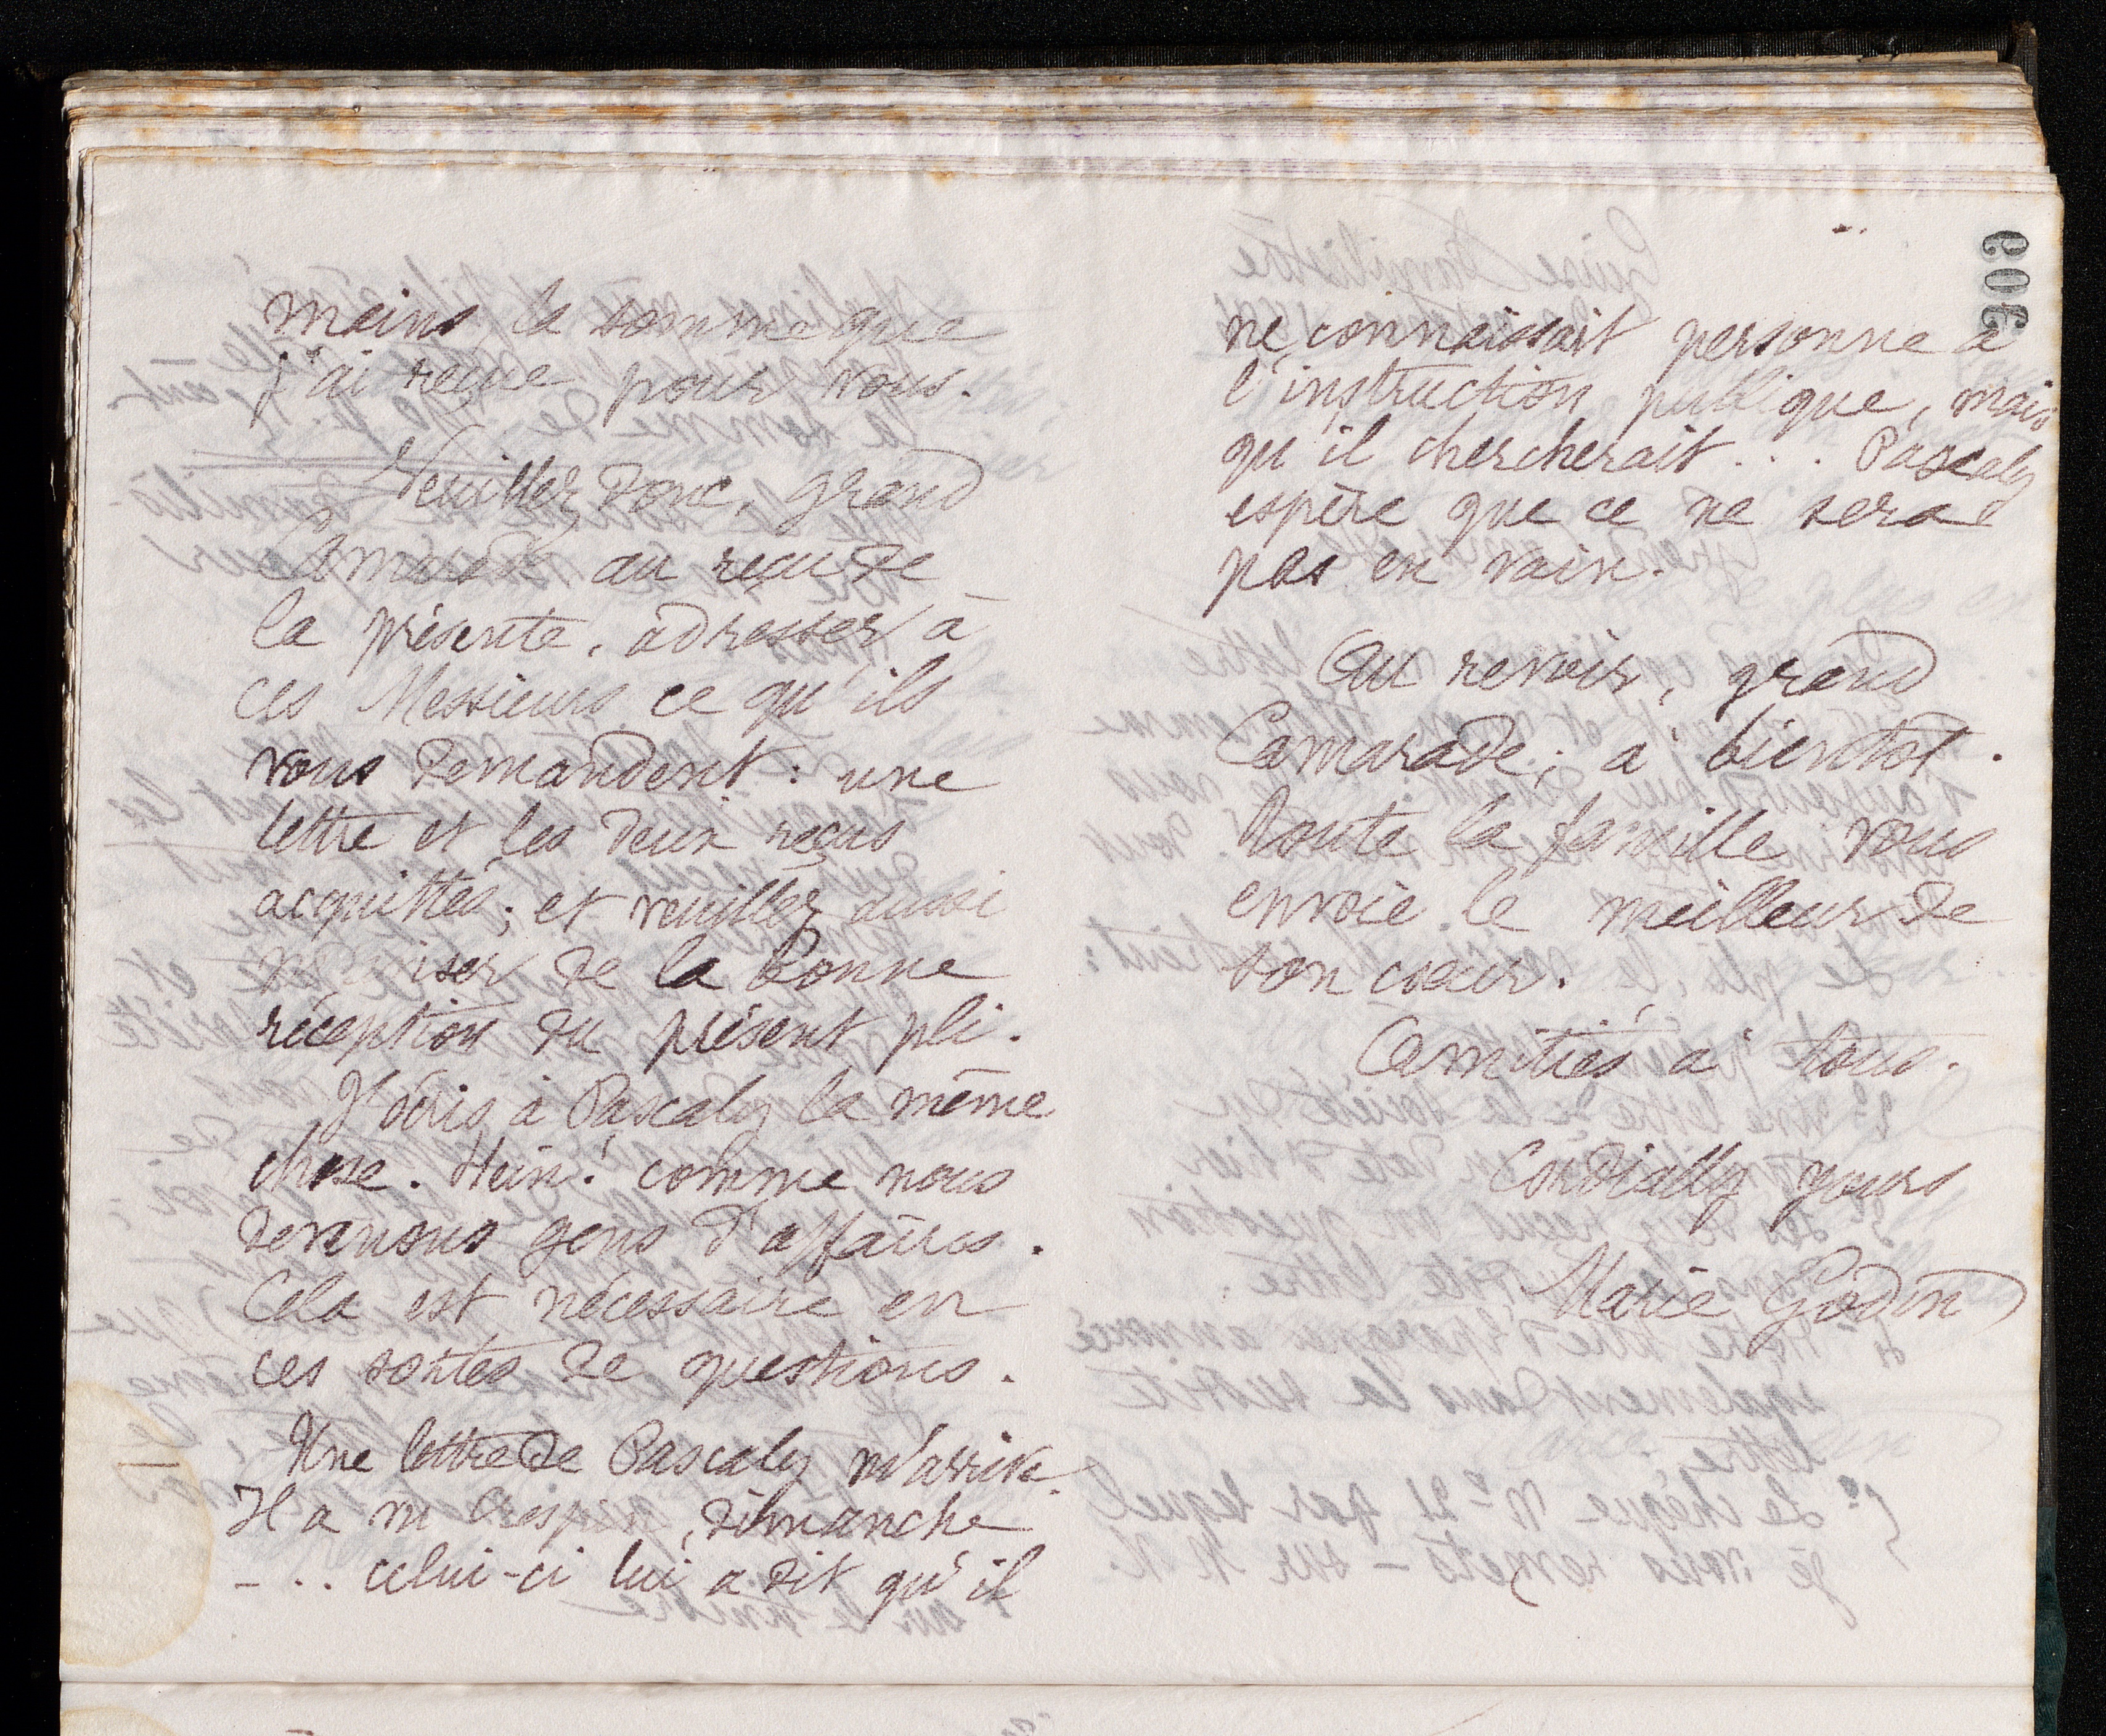 mains la somme que
j'ai reçue pour vous.
Veuillez donc, grand
Camarade au reçu de
la présente, adresser à
ces Messieurs ce qu'ils
vous demandent : une
lettre et les deux reçus
acquittés; et veuillez aussi
m'aviser de la bonne
réception du présent pli.
J'écris à Pascaly la même
chose. Hein! comme nous
devenons gens d'affaires.
Cela est nécessaire en
ces sortes de questions.
Une lettre de Pascaly m'arrive.
Il a vu Crespin, dimanche
- .. celui-ci lui a dit qu'il
906
ne connaissait personne à
l'instruction publique, mais
qu'il chercherait... Pascaly
espère que ce ne sera
pas en vain.
Au revoir, grand
Camarade; à bientôt.
Toute la famille vous
envoie le meilleur de
son cœur.
Amitiés à tous.
Cordially yours
Marie Godin